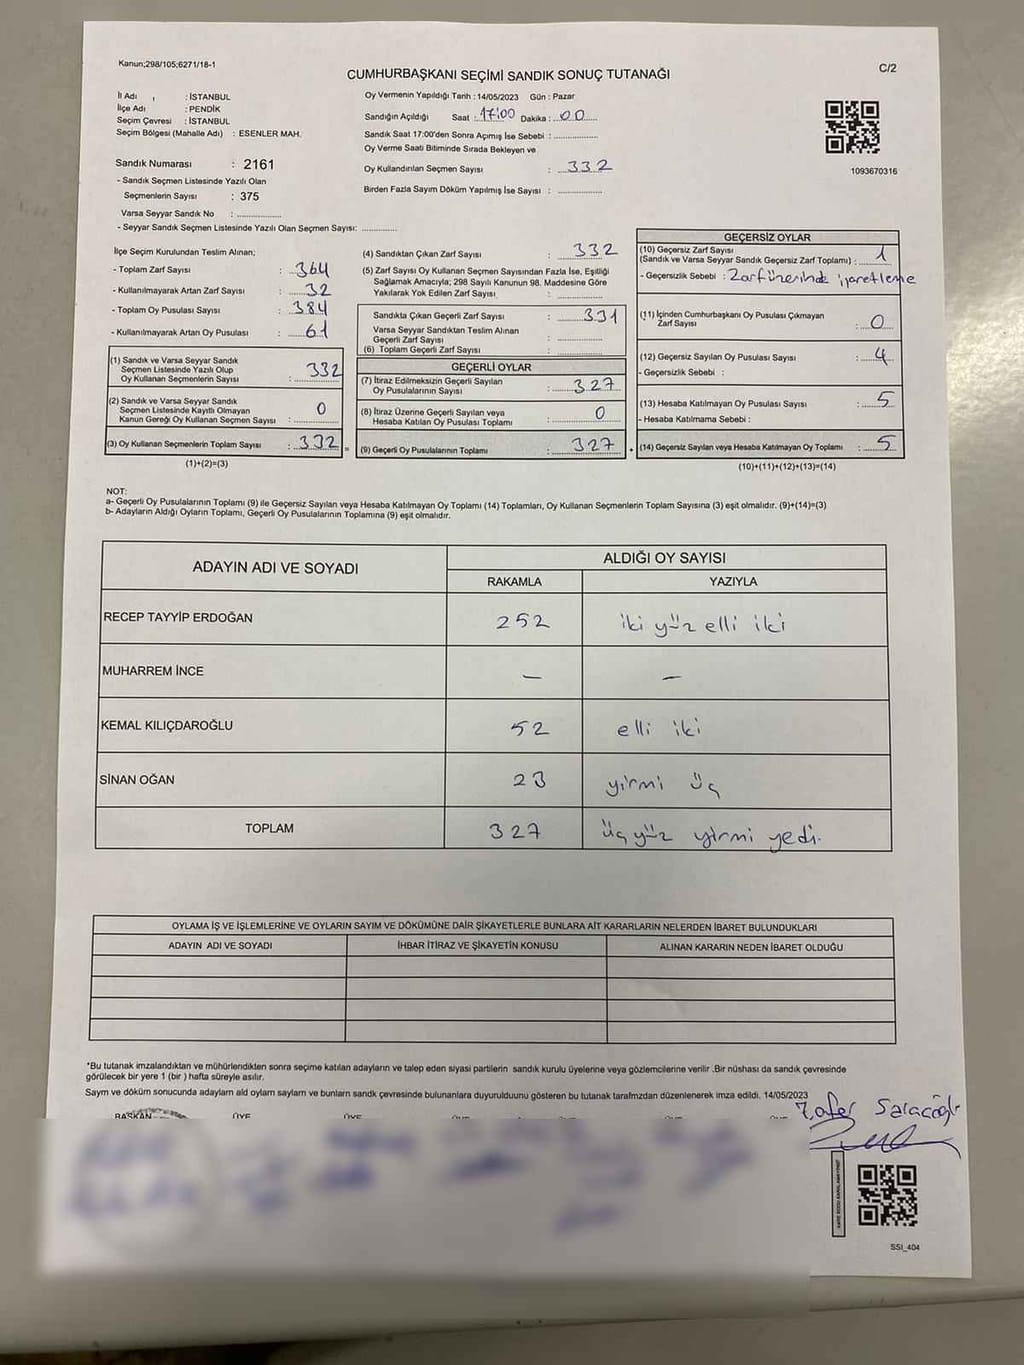 Kanun;298/105;6271/18-1
C/2
CUMHURBAŞKANI SEÇİMİ SANDIK SONUÇ TUTANAĞI
İl Adı : İSTANBUL
İlçe Adı : PENDİK
Seçim Çevresi : İSTANBUL
Seçim Bölgesi (Mahalle Adı) : ESENLER MAH.
Sandık Numarası : 2161
- Sandık Seçmen Listesinde Yazılı Olan
Seçmenlerin Sayısı : 375
Varsa Seyyar Sandık No : ..............
- Seyyar Sandık Seçmen Listesinde Yazılı Olan Seçmen Sayısı: ............
Oy Vermenin Yapıldığı Tarih : 14/05/2023 Gün : Pazar
Sandığın Açıldığı Saat : 17:00 Dakika : 00
Sandık Saat 17:00'den Sonra Açımış İse Sebebi : ..............
Oy Verme Saati Bitiminde Sırada Bekleyen ve
Oy Kullandırılan Seçmen Sayısı : 332
Birden Fazla Sayım Döküm Yapılmış İse Sayısı : ..............
1093670316
İlçe Seçim Kurulundan Teslim Alınan;
- Toplam Zarf Sayısı : 364
- Kullanılmayarak Artan Zarf Sayısı : 32
- Toplam Oy Pusulası Sayısı : 384
- Kullanılmayarak Artan Oy Pusulası : 61
(1) Sandık ve Varsa Seyyar Sandık
Seçmen Listesinde Yazılı Olup
Oy Kullanan Seçmenlerin Sayısı : 332
(2) Sandık ve Varsa Seyyar Sandık
Seçmen Listesinde Kayıtlı Olmayan
Kanun Gereği Oy Kullanan Seçmen Sayısı : 0
(3) Oy Kullanan Seçmenlerin Toplam Sayısı : 332
(1)+(2)=(3)
(4) Sandıktan Çıkan Zarf Sayısı : 332
(5) Zarf Sayısı Oy Kullanan Seçmen Sayısından Fazla İse, Eşitliği
Sağlamak Amacıyla; 298 Sayılı Kanunun 98. Maddesine Göre
Yakılarak Yok Edilen Zarf Sayısı : ..............
Sandıkta Çıkan Geçerli Zarf Sayısı : 331
Varsa Seyyar Sandıktan Teslim Alınan
Geçerli Zarf Sayısı : ..............
(6) Toplam Geçerli Zarf Sayısı : ..............
GEÇERLİ OYLAR
(7) İtiraz Edilmeksizin Geçerli Sayılan
Oy Pusulalarının Sayısı : 327
(8) İtiraz Üzerine Geçerli Sayılan veya
Hesaba Katılan Oy Pusulası Toplamı : 0
(9) Geçerli Oy Pusulalarının Toplamı : 327
GEÇERSİZ OYLAR
(10) Geçersiz Zarf Sayısı
(Sandık ve Varsa Seyyar Sandık Geçersiz Zarf Toplamı) : 1
- Geçersizlik Sebebi : Zarf üzerinde işaretleme
(11) İçinden Cumhurbaşkanı Oy Pusulası Çıkmayan
Zarf Sayısı : 0
(12) Geçersiz Sayılan Oy Pusulası Sayısı : 4
- Geçersizlik Sebebi :
(13) Hesaba Katılmayan Oy Pusulası Sayısı : 5
- Hesaba Katılmama Sebebi :
(14) Geçersiz Sayılan veya Hesaba Katılmayan Oy Toplamı : 5
(10)+(11)+(12)+(13)=(14)
NOT:
a- Geçerli Oy Pusulalarının Toplamı (9) ile Geçersiz Sayılan veya Hesaba Katılmayan Oy Toplamı (14) Toplamları, Oy Kullanan Seçmenlerin Toplam Sayısına (3) eşit olmalıdır. (9)+(14)=(3)
b- Adayların Aldığı Oyların Toplamı, Geçerli Oy Pusulalarının Toplamına (9) eşit olmalıdır.
ADAYIN ADI VE SOYADI ALDIĞI OY SAYISI
RAKAMLA YAZIYLA
RECEP TAYYİP ERDOĞAN 252 iki yüz elli iki
MUHARREM İNCE — —
KEMAL KILIÇDAROĞLU 52 elli iki
SİNAN OĞAN 23 yirmi üç
TOPLAM 327 üç yüz yirmi yedi.
OYLAMA İŞ VE İŞLEMLERİNE VE OYLARIN SAYIM VE DÖKÜMÜNE DAİR ŞİKAYETLERLE BUNLARA AİT KARARLARIN NELERDEN İBARET BULUNDUKLARI
ADAYIN ADI VE SOYADI İHBAR İTİRAZ VE ŞİKAYETİN KONUSU ALINAN KARARIN NEDEN İBARET OLDUĞU
*Bu tutanak imzalandıktan ve mühürlendikten sonra seçime katılan adayların ve talep eden siyasi partilerin sandık kurulu üyelerine veya gözlemcilerine verilir .Bir nüshası da sandık çevresinde
görülecek bir yere 1 (bir ) hafta süreyle asılır.
Sayım ve döküm sonucunda adayların ald oyların sayların ve bunların sandk çevresinde bulunanlara duyurulduunu gösteren bu tutanak tarafmzdan düzenlenerek imza edildi. 14/05/2023
BAŞKAN ÜYE ÜYE
Zafer Saraçoğlu
SSI_404